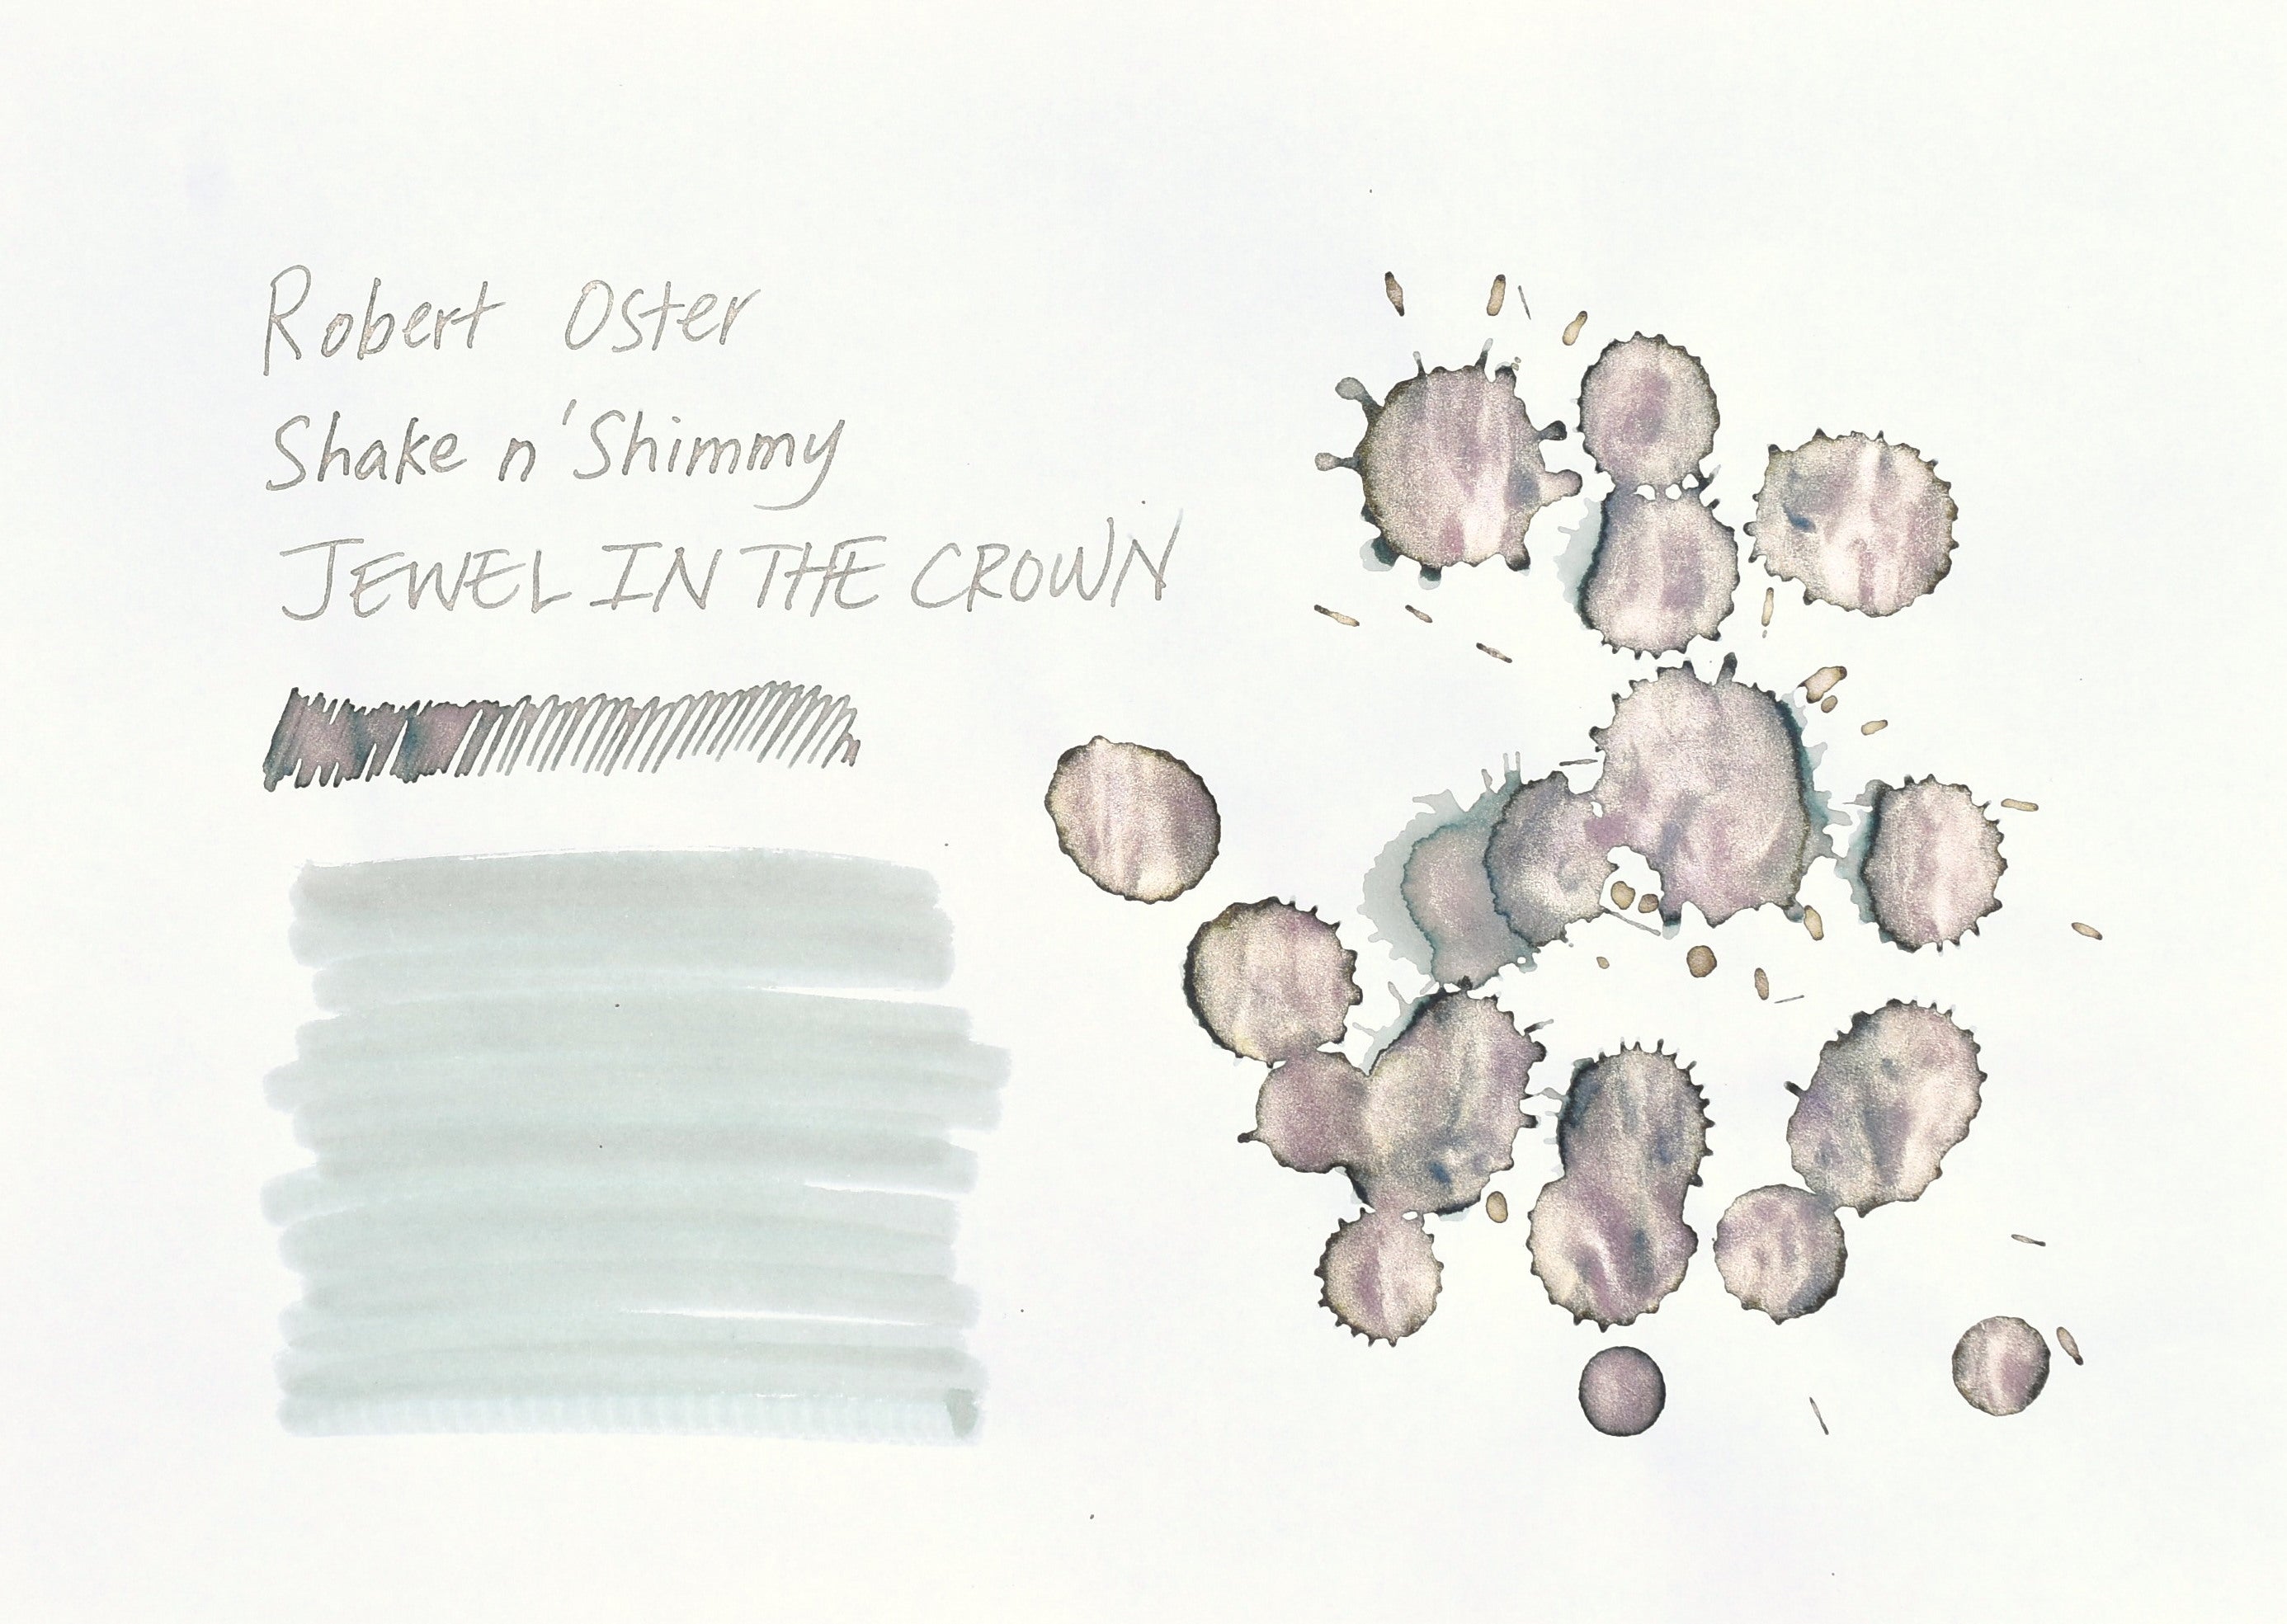 Robert Oster
Shake n'Shimmy
JEWEL IN THE CROWN